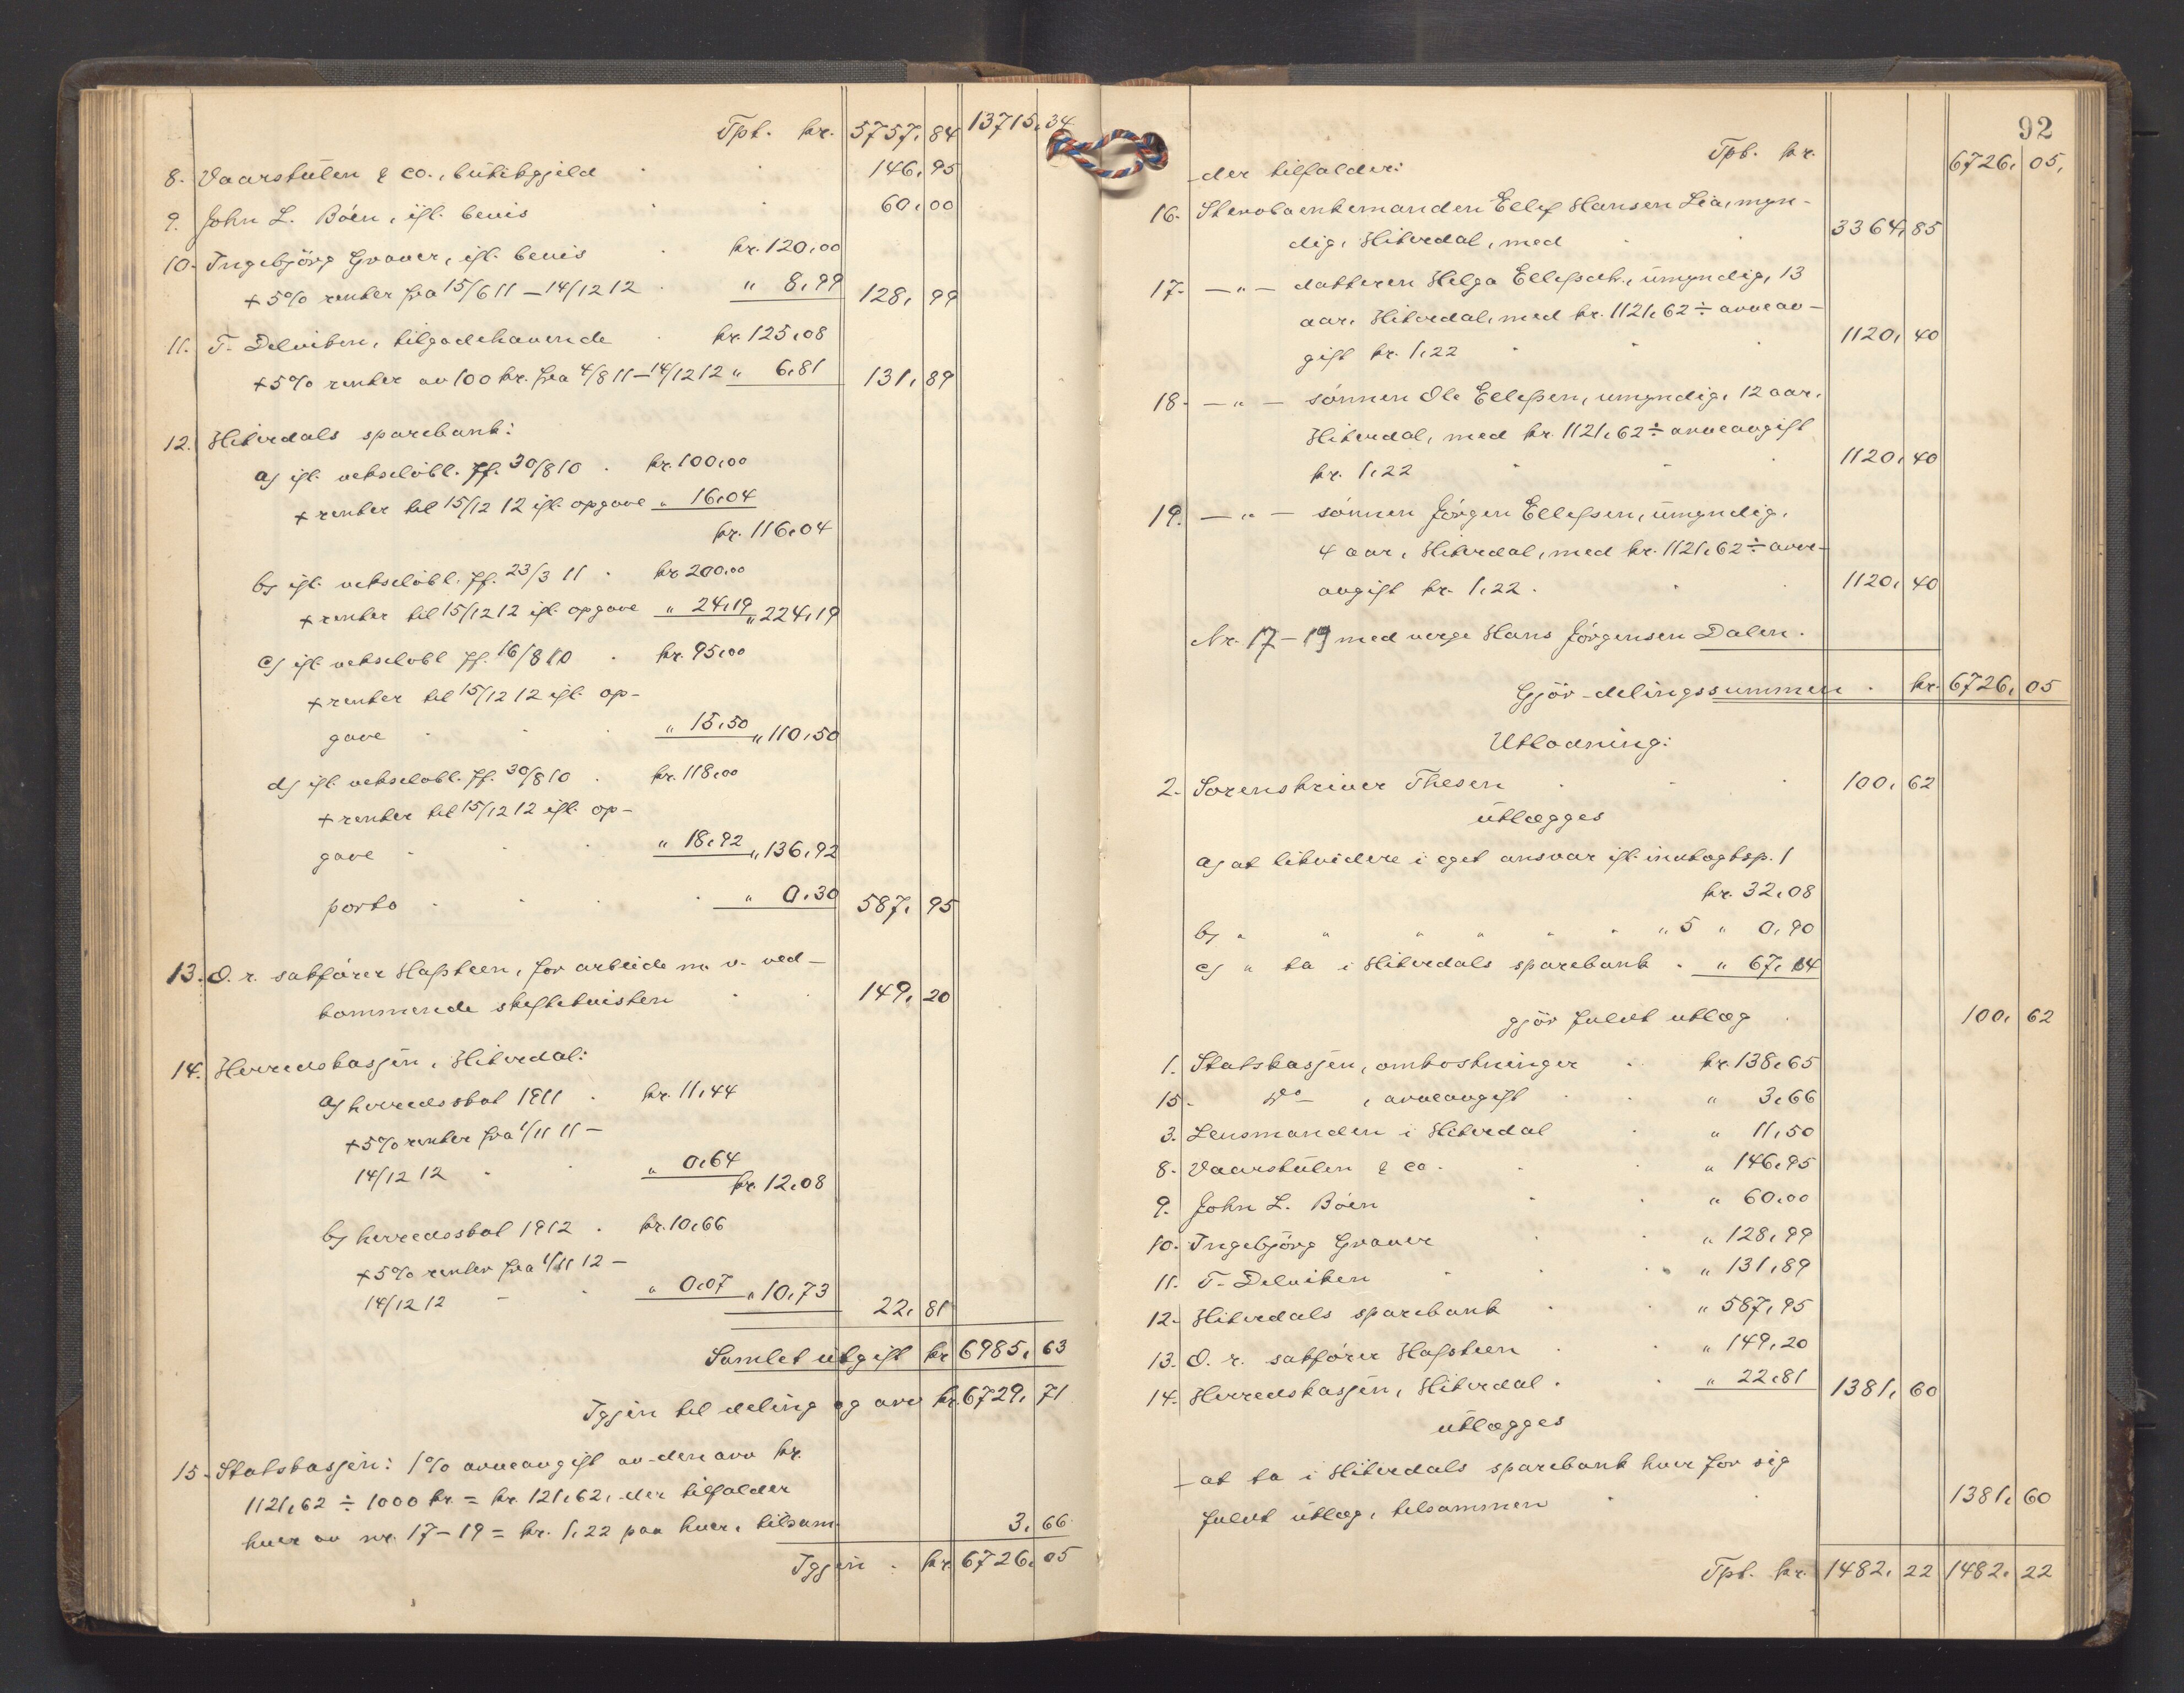 Tpt. kr. 5757,84 13715,34
8. Vaarstülen & co., bütikgjeld 146,95
9. John L. Böen, ifl. bevis 60,00
10. Ingebjörg Graver, ifl. bevis kr. 120,00
+ 5% renter fra 15/6 11 – 14/12 12 " 8,99 128,99
11. T. Delviken, tilgodehavende kr. 125,08
+ 5% renter av 100 kr. fra 4/8 11 – 14/12 12 " 6,81 131,89
12. Hiterdals sparebank:
a) ifl. vekselobl. pf. 30/8 10 kr. 100,00
+ renter til 15/12 12 ifl. opgave " 16,04
kr. 116,04
b) ifl. vekselobl. pf. 23/3 11 kr. 200,00
+ renter til 15/12 12 ifl. opgave " 24,19 " 224,19
c) ifl. vekselobl. pf. 16/8 10 kr. 95,00
+ renter til 15/12 12 ifl. op-
gave " 15,50 " 110,50
d) ifl. vekselobl. pf. 30/8 10 kr. 118,00
+ renter til 15/12 12 ifl. op-
gave " 18,92 " 136,92
porto " 0,30 587,95
13. O. r. sakförer Hafsteen, for arbeide m. v. ved-
kommende skiftetvisten 149,20
14. Herredskassen, Hiterdal:
a) herredsskat 1911 kr. 11,44
+ 5% renter fra 1/11 11 –
14/12 12 " 0,64
kr. 12,08
b) herredsskat 1912 kr. 10,66
+ 5% renter fra 1/11 12 –
14/12 12 " 0,07 " 10,73 22,81
Samlet ütgift kr. 6985,63
Igjen til deling og arv kr. 6729,71
15. Statskassen: 1% arveavgift av den arv kr.
1121,62 ÷ 1000 kr. = kr. 121,62, der tilfalder
hver av nr. 17–19 = kr. 1,22 paa hver, tilsam. 3,66
Igjen kr. 6726,05
92
Tpt. kr. 6726,05,
der tilfalder:
16. Enkemanden Ellef Hansen Lia, myn-
dig, Hiterdal, med 3364,85
17. – " – datteren Helga Ellefsdtr., ümyndig, 13
aar, Hiterdal, med kr. 1121,62 ÷ arveav-
gift kr. 1,22 1120,40
18. – " – sönnen Ole Ellefsen, umyndig, 12 aar,
Hiterdal, med kr. 1121,62 ÷ arveavgift
kr. 1,22 1120,40
19. – " – sönnen Jörgen Ellefsen, ümyndig,
4 aar, Hiterdal, med kr. 1121,62 ÷ arve-
avgift kr. 1,22. 1120,40
Nr. 17–19 med verge Hans Jörgensen Dalen.
Gjör delingssummen kr. 6726,05
Utlodning:
2. Sorenskriver Thesen 100,62
ütlægges
a) at likvidere i eget ansvar ifl. indtægtsp. 1
kr. 32,08
b) " " " " " " " 5 " 0,90
c) " ta i Hiterdals sparebank " 67,64
gjör fuldt utlæg 100,62
1. Statskassen, omkostninger kr. 138,65
15. do , arveavgift " 3,66
3. Lensmanden i Hiterdal " 11,50
8. Vaarstülen & co. " 146,95
9. John L. Böen " 60,00
10. Ingebjörg Graver " 128,99
11. T. Delviken " 131,89
12. Hiterdals sparebank " 587,95
13. O. r. sakförer Hafsteen " 149,20
14. Herredskassen, Hiterdal. " 22,81 1381,60
ütlægges
at ta i Hiterdals sparebank hver for sig
fuldt ütlæg, tilsammen 1381,60
Tpt. kr. 1482,22 1482,22